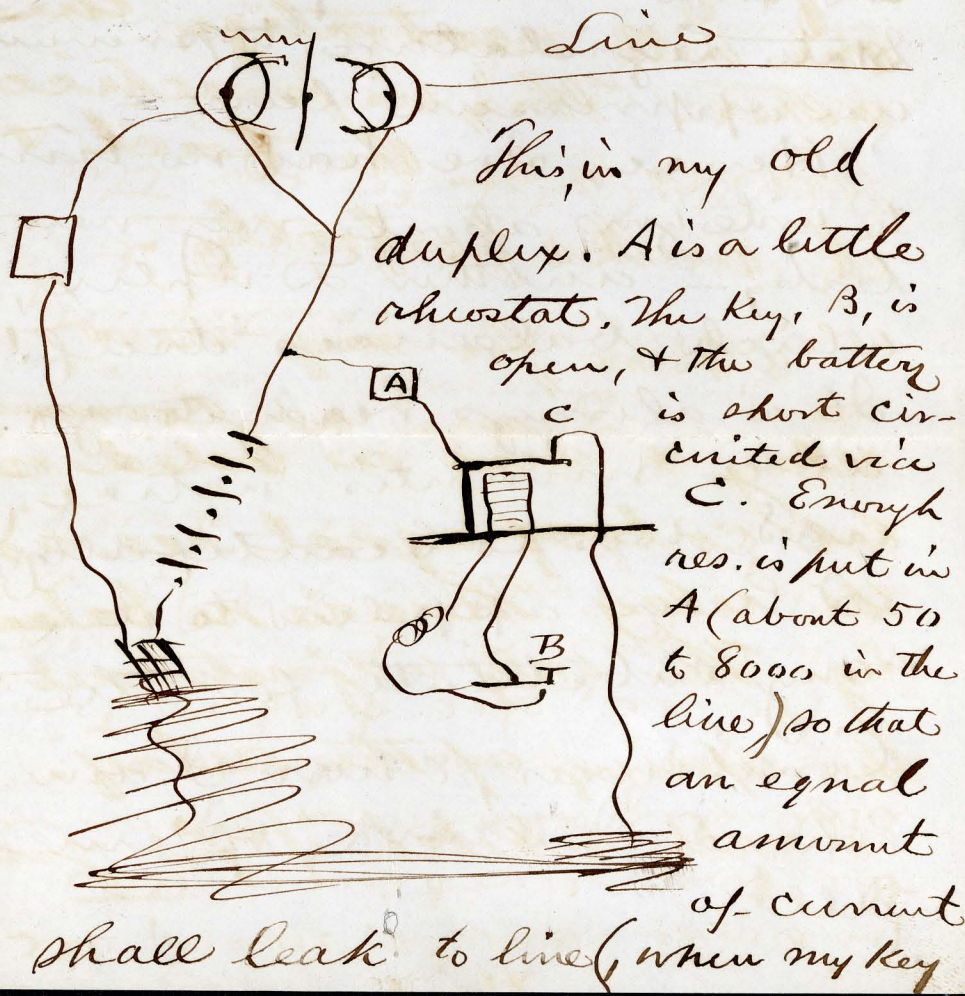 Line
This, is my old
duplex. A is a little
rheostat. The Key, B, is
open, & the battery
A
C
is short cir-
cuited via
C. Enough
res. is put in
A (about 50
B
to 8000 in the
line,) so that
an equal
amount
of current
shall leak to line (, when my Key